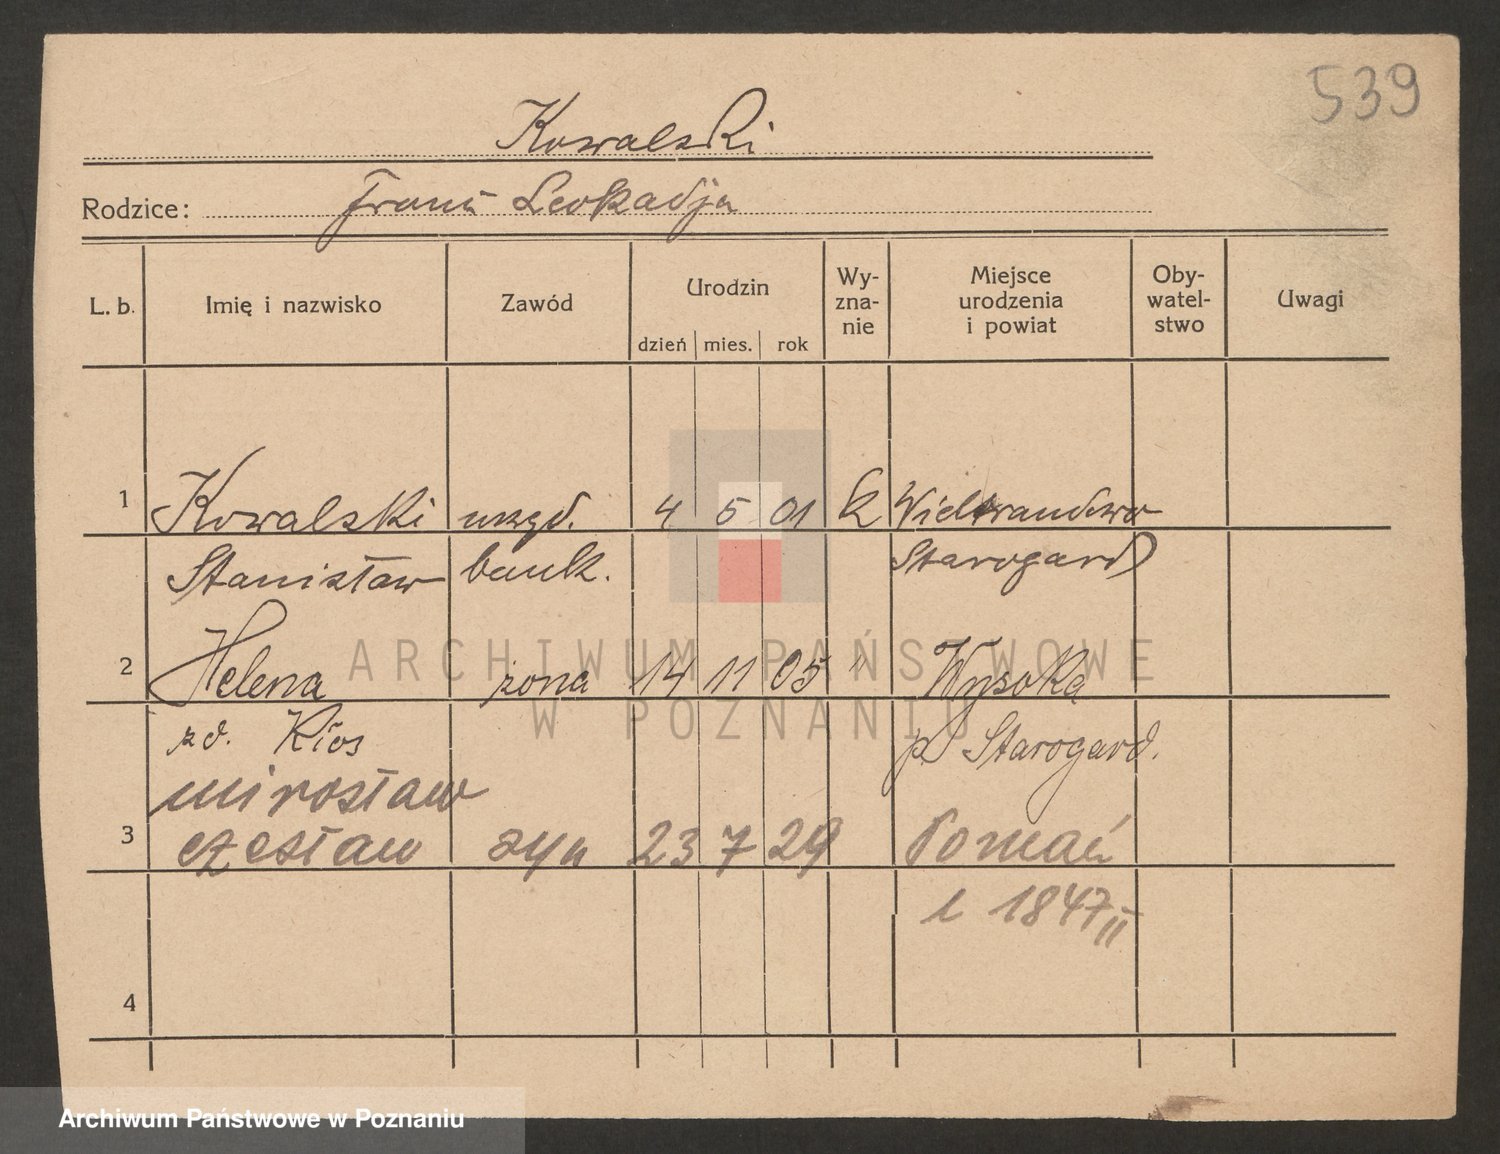 539
Kowalski
Rodzice: Franc Leokadja
L. b. Imię i nazwisko Zawód Urodzin dzień mies. rok Wy-zna-nie Miejsce urodzenia i powiat Oby-watel-stwo Uwagi
1 Kowalski urzęd. 4 5 01 k
Stanisław bank. Starogard
ARCHIWUM PAŃSTWOWE
W POZNANIU
2 Helena żona 14 11 05 " Wysoka
zd. Kłos p Starogard.
mirosław
3 czesław syn 23 7 29 Poznań
1847 II
4
Archiwum Państwowe w Poznaniu